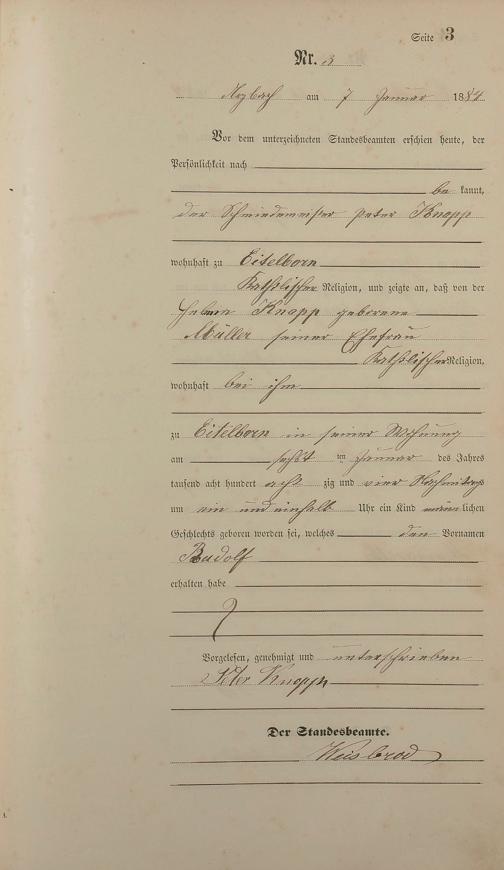 Seite 3
Nr. 3
Arzbach am 7 Januar 1884
Vor dem unterzeichneten Standesbeamten erschien heute, der
Persönlichkeit nach
be kannt,
der Schmiedemeister Peter Knopp
wohnhaft zu Eitelborn
Katholischer Religion, und zeigte an, daß von der
Helena Knopp geborene
Müller seiner Ehefrau
Katholischer Religion,
wohnhaft bei ihm
zu Eitelborn in seiner Wohnung
am sechst ten Januar des Jahres
tausend acht hundert acht zig und vier Nachmittags
um ein und einhalb Uhr ein Kind männlichen
Geschlechts geboren worden sei, welches den Vornamen
Rudolf
erhalten habe
Vorgelesen, genehmigt und unterschrieben
Peter Knopp
Der Standesbeamte.
Weisbrod